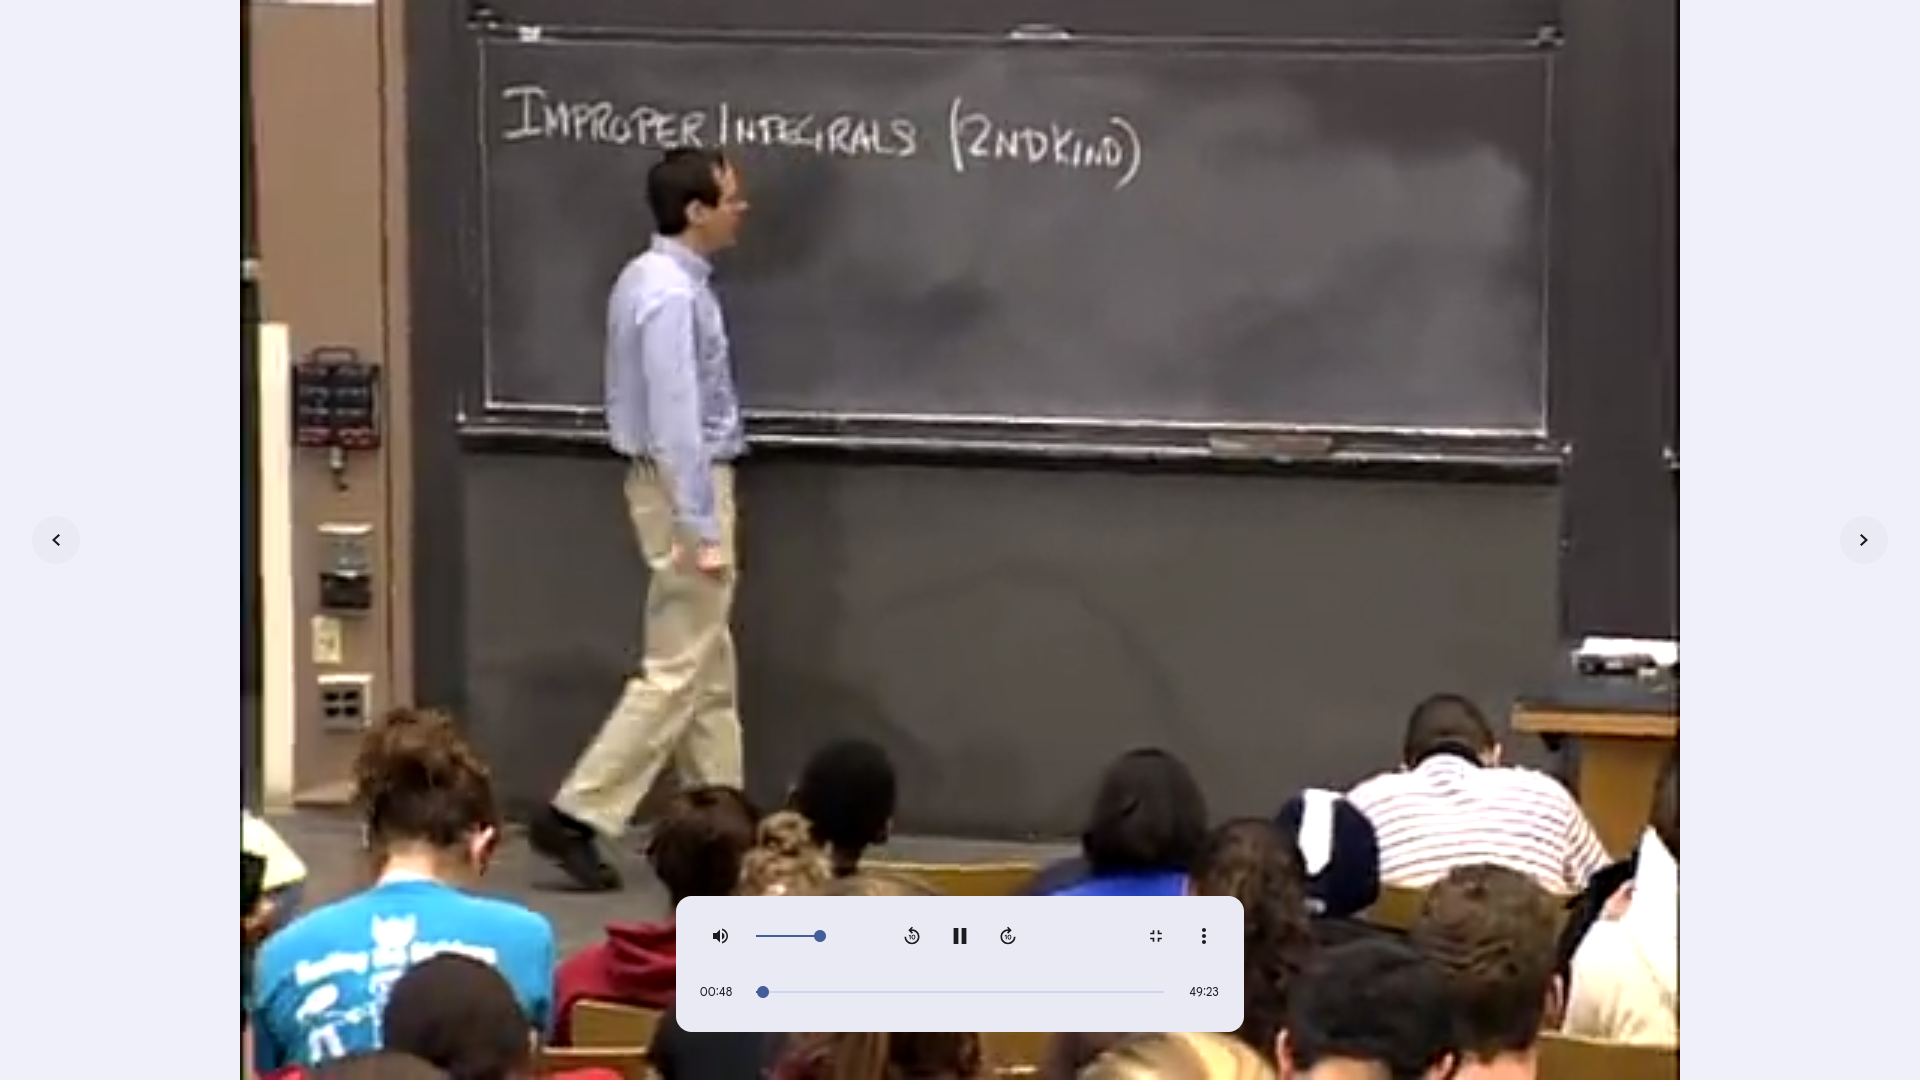 IMPROPER INTEGRALS (2ND KIND)
10
10
00:48
49:23